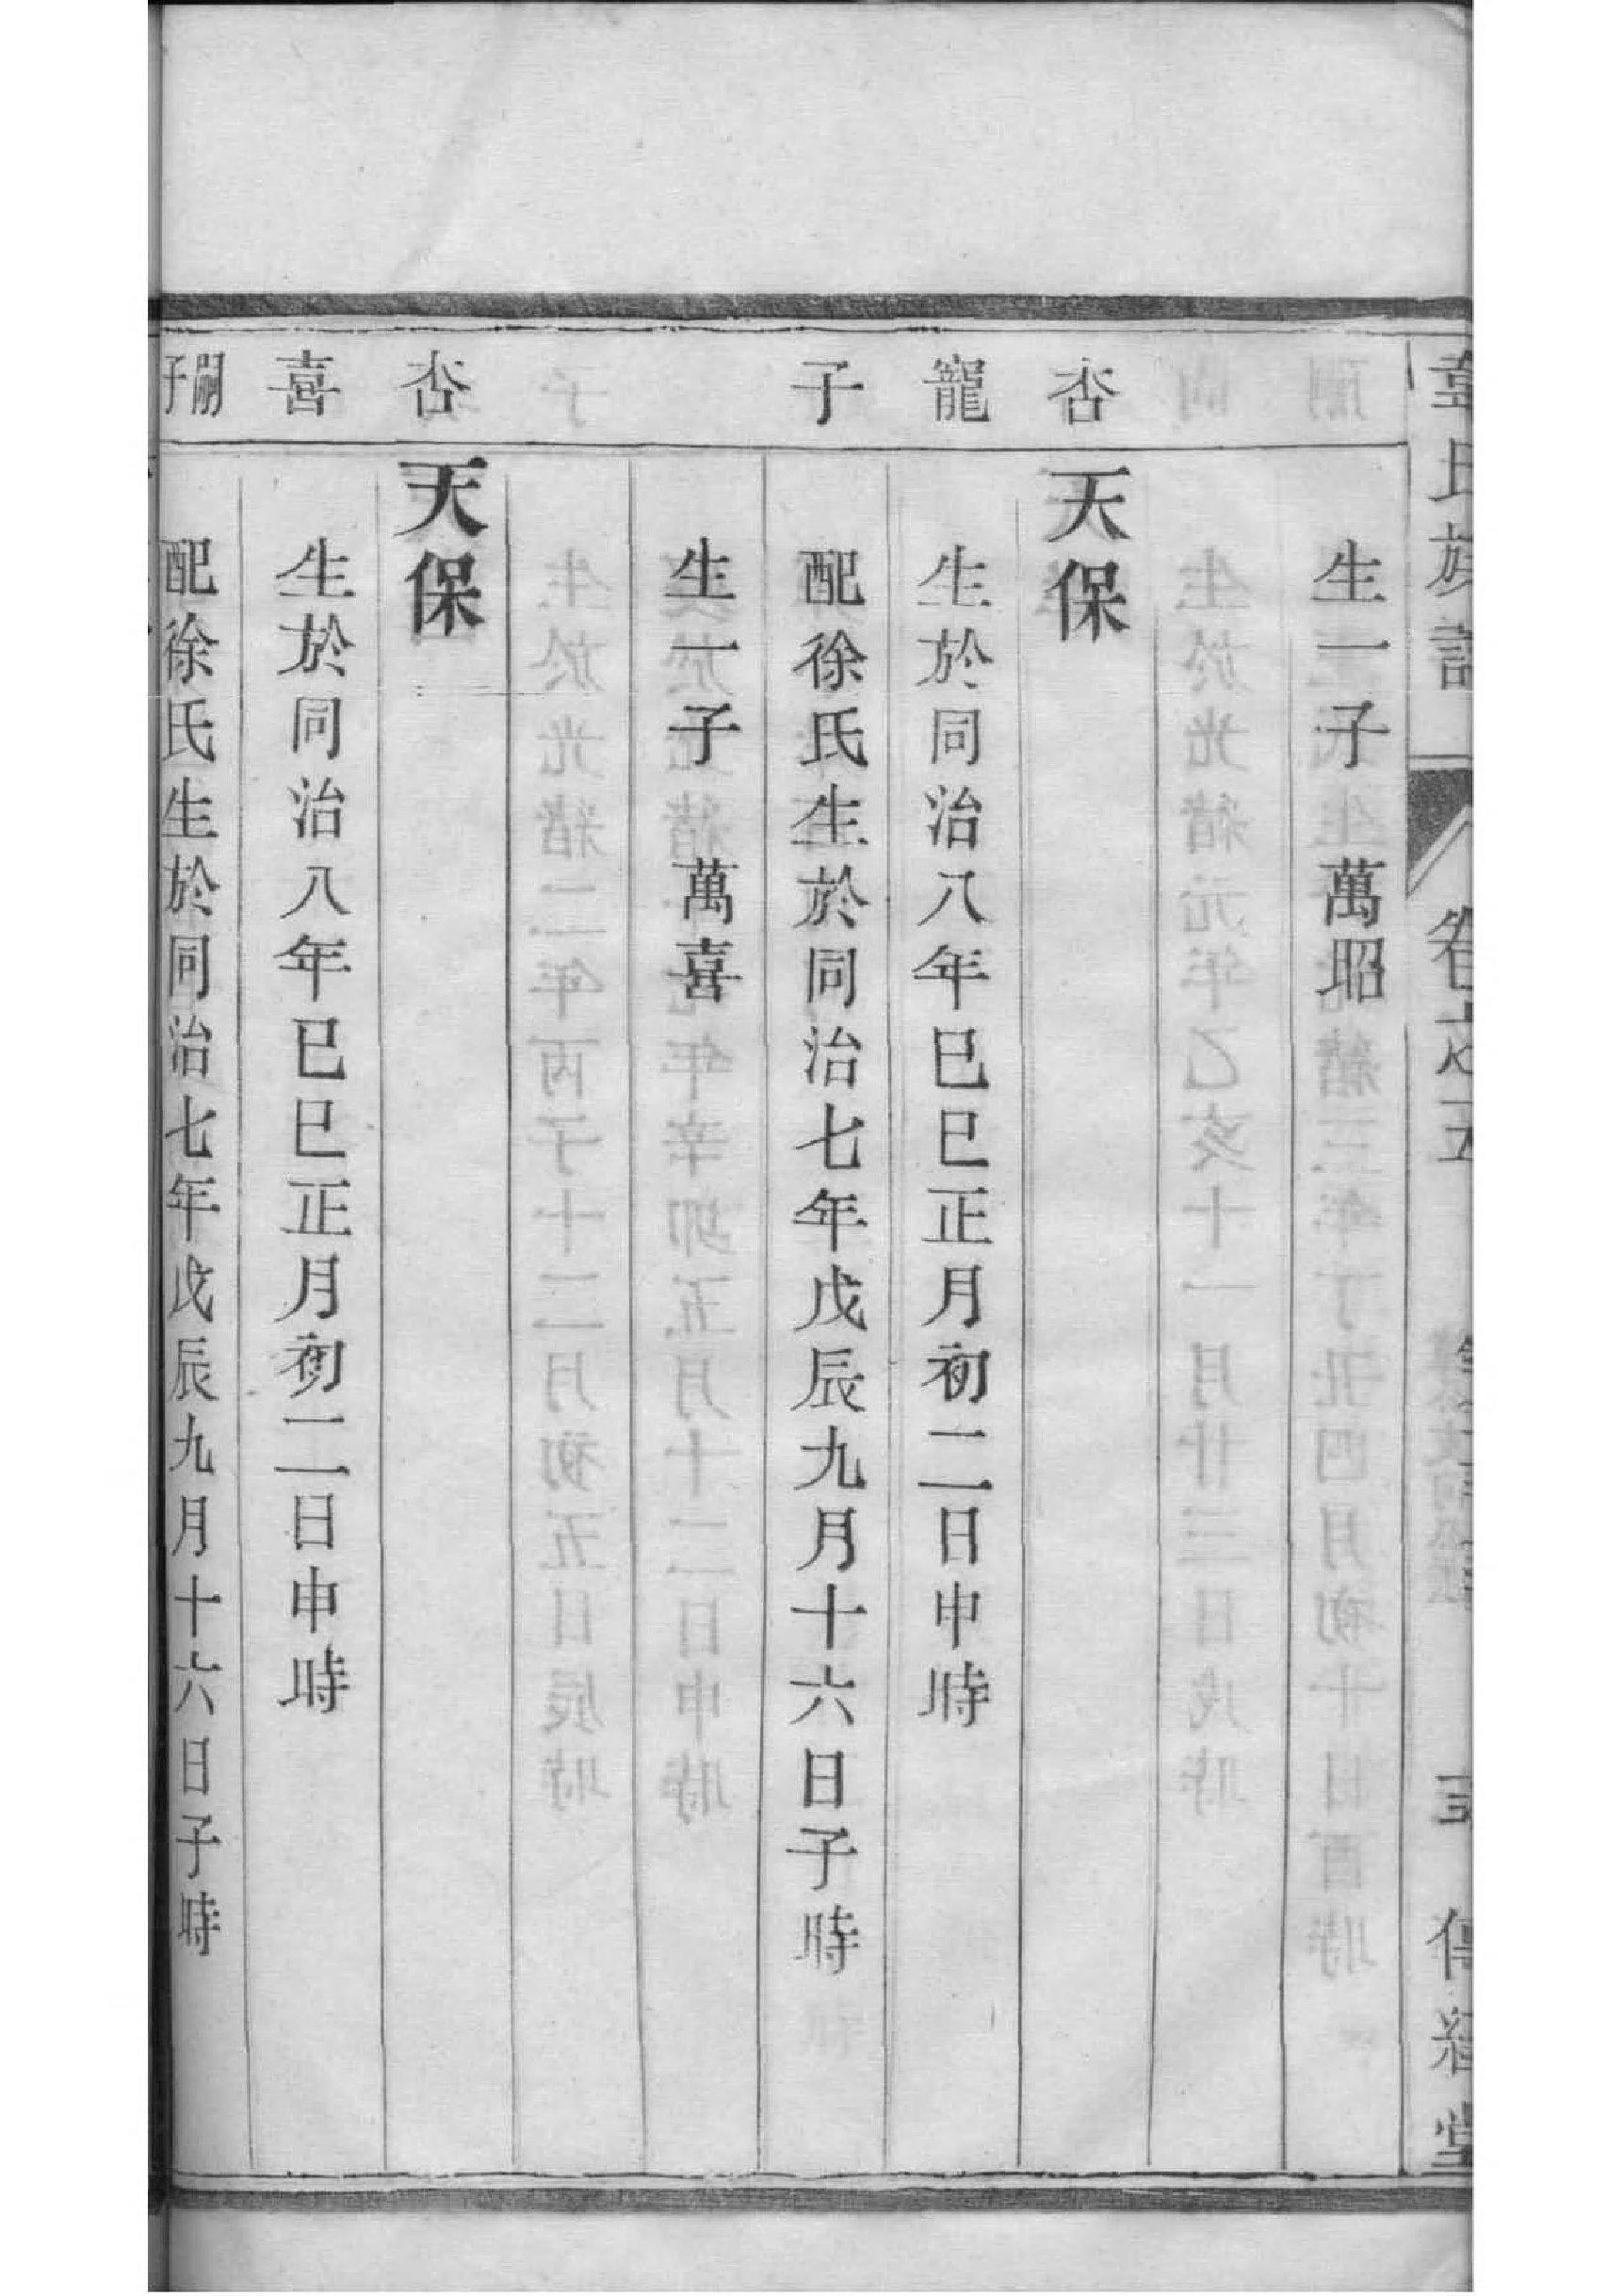 氏族譜 卷之五 堂
生一子 萬昭
杏 天保
寵 生於同治八年已巳正月初二日申時
子 配徐氏生於同治七年戊辰九月十六日子時
生一子 萬喜
杏 天保
喜 生於同治八年已巳正月初二日申時
嗣子 配徐氏生於同治七年戊辰九月十六日子時